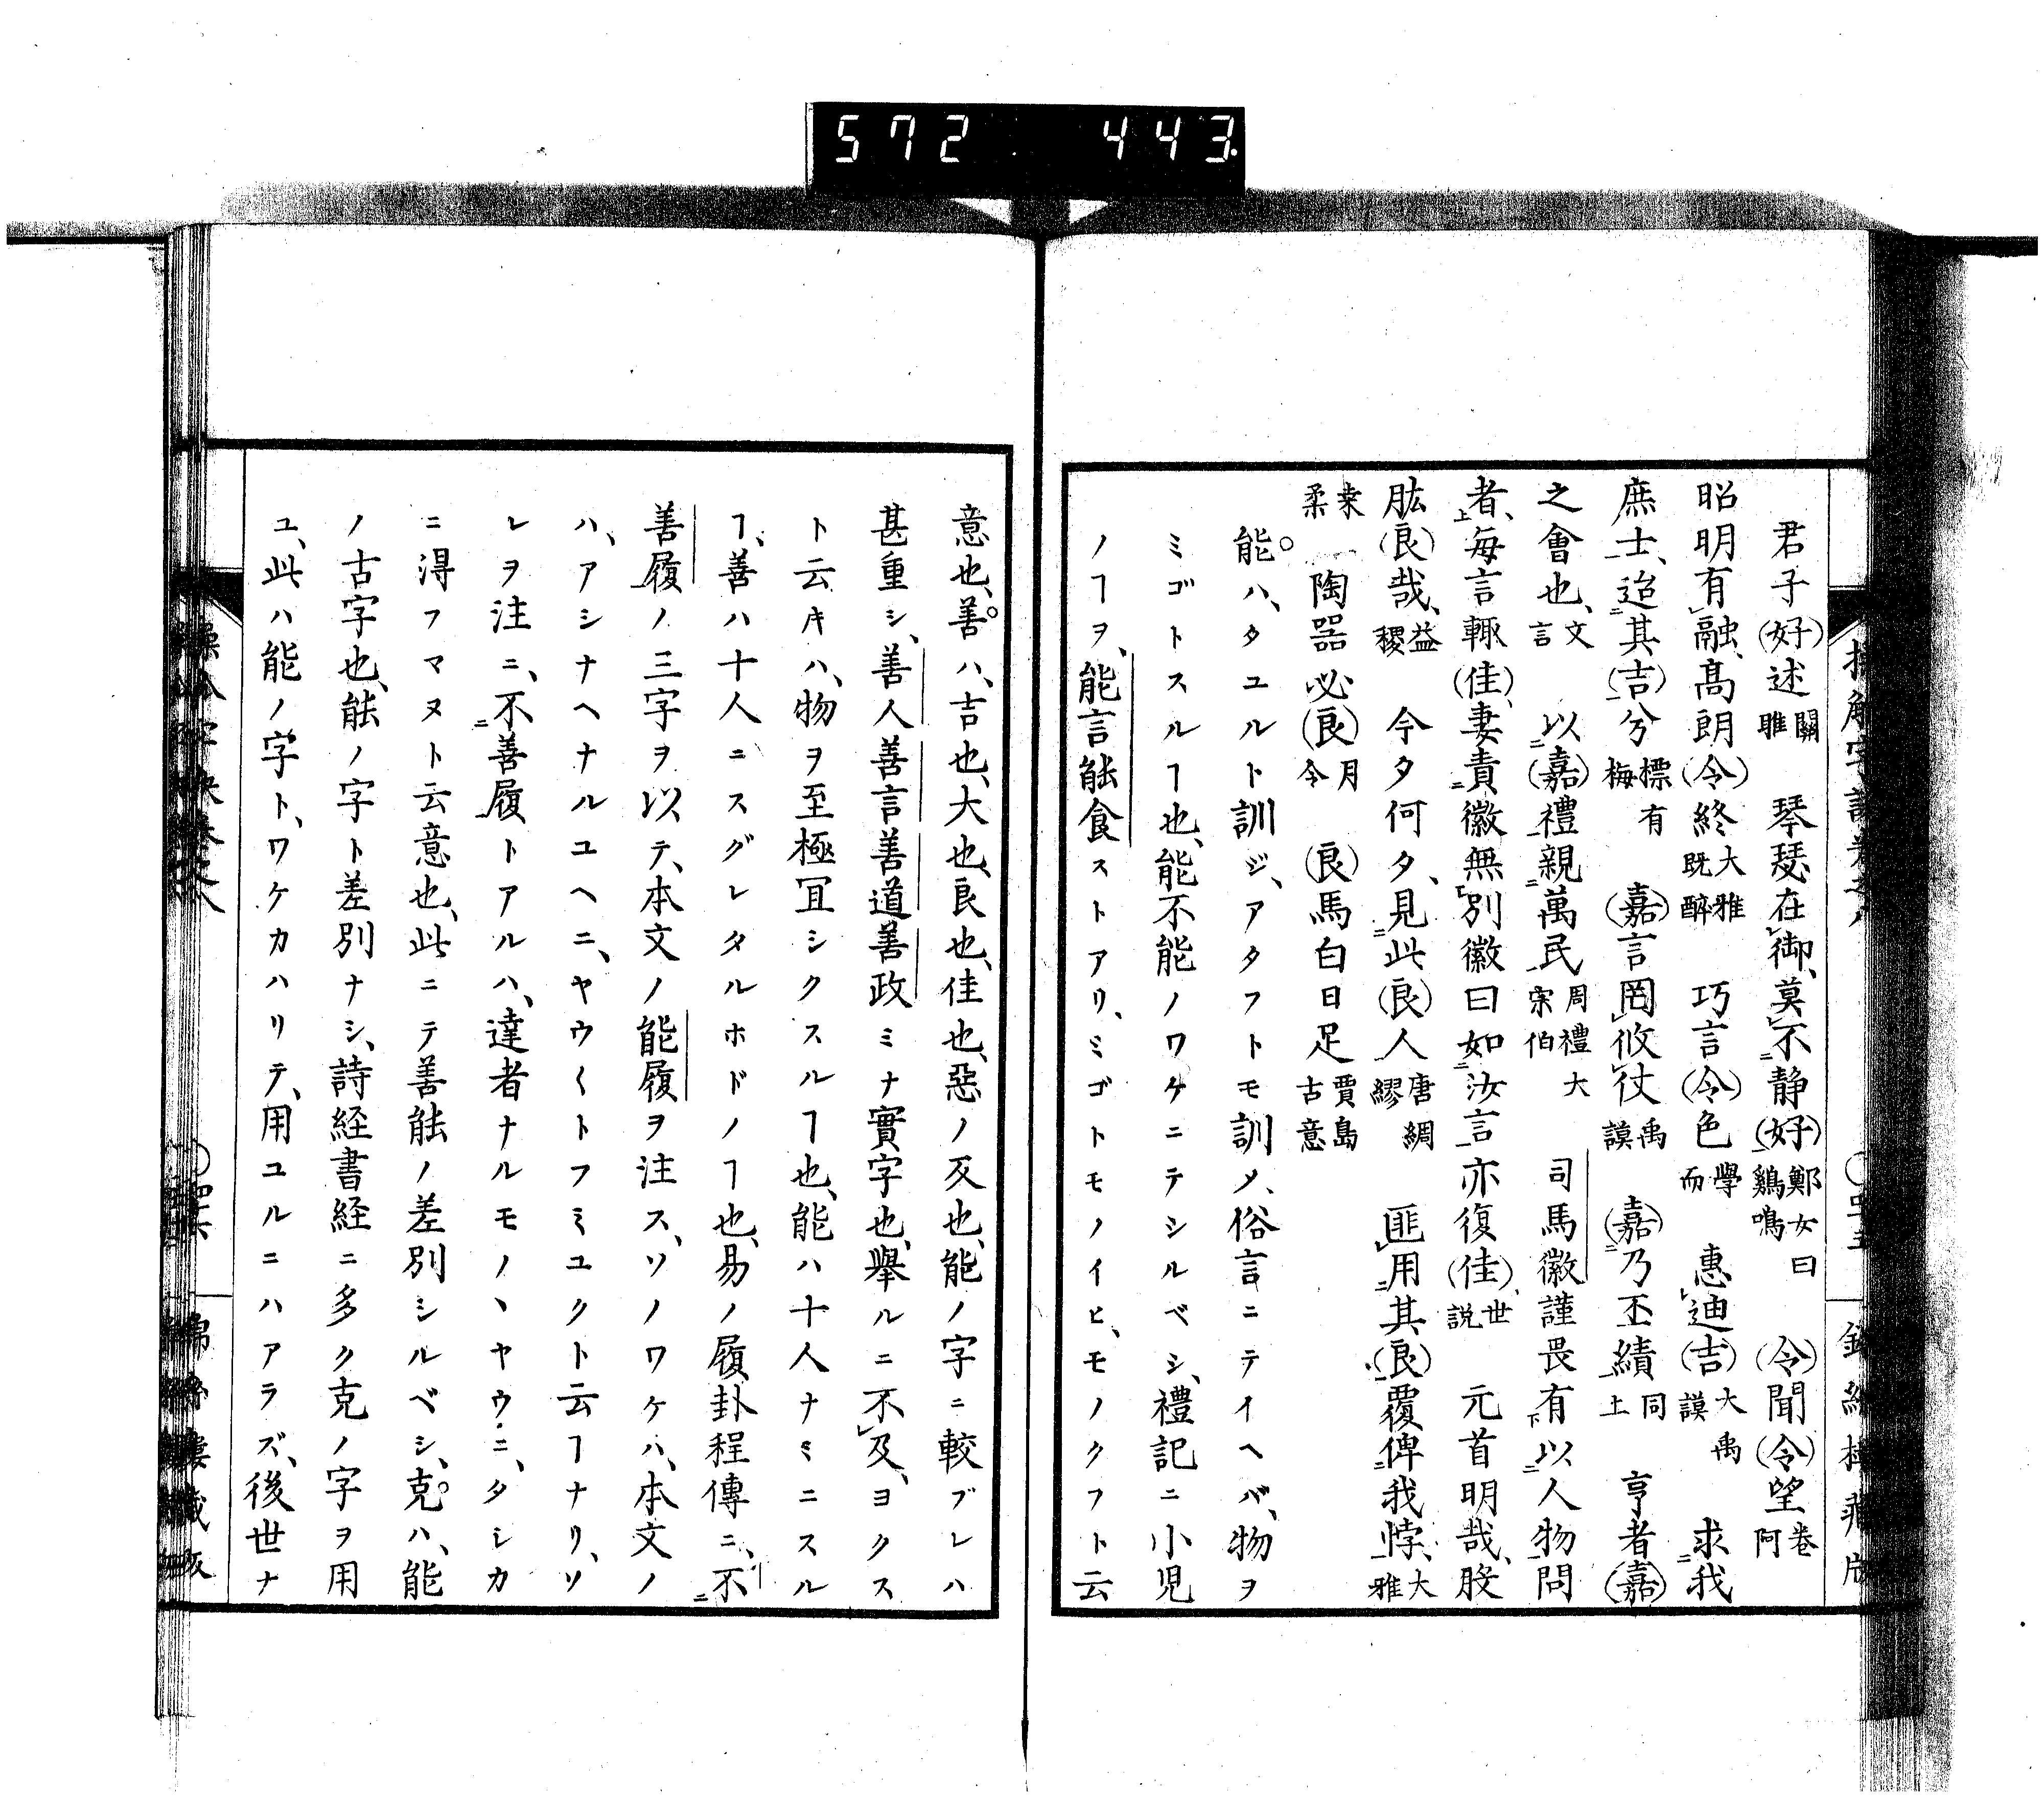 572 443.
君子(好)逑關雎　琴瑟在御、莫不静(好)鄭女曰鷄鳴　(令)聞(令)望卷阿
昭明有融、髙朗(令)終大雅既醉　巧言(令)色學而　惠迪(吉)大禹謨　求我
庶士、迨其(吉)兮摽有梅　(嘉)言罔攸伏禹謨　(嘉)乃丕績同上　亨者(嘉)
之會也、文言　以(嘉)禮親萬民周禮大宗伯　司馬徽謹畏有以人物問
者、每言輒(佳)、妻責徽無別徽曰如汝言亦復(佳)、世説　元首明哉、股
肱(良)哉、益稷　今夕何夕、見此(良)人唐綢繆　匪用其(良)覆俾我悖、大雅
桒柔　陶器必(良)月令　(良)馬白日足賈島古意
能。ハ、タユルト訓ジ、アタフトモ訓メ、俗言ニテイヘバ、物ヲ
ミゴトスルヿ也、能不能ノワケニテシルベシ、禮記ニ小児
ノヿヲ、能言能食ストアリ、ミゴトモノイヒ、モノクフト云
意也、善。ハ、吉也、大也、良也、佳也、惡ノ反也、能ノ字ニ較ブレハ
甚重シ、善人善言善道善政ミナ實字也、舉ルニ不及、ヨクス
ト云キハ、物ヲ至極冝シクスルヿ也、能ハ十人ナミニスル
ヿ、善ハ十人ニスグレタルホドノヿ也、易ノ履卦程傳ニ、不
善履ノ三字ヲ以テ、本文ノ能履ヲ注ス、ソノワケハ、本文ノ
ハ、アシナヘナルユヘニ、ヤウ〱トフミユクト云ヿナリ、ソ
レヲ注ニ、不善履トアルハ、達者ナルモノヽヤウニ、タシカ
ニ得フマヌト云意也、此ニテ善能ノ差別シルベシ、克。ハ、能
ノ古字也、能ノ字ト差別ナシ、詩経書経ニ多ク克ノ字ヲ用
ユ、此ハ能ノ字ト、ワケカハリテ、用ユルニハアラズ、後世ナ